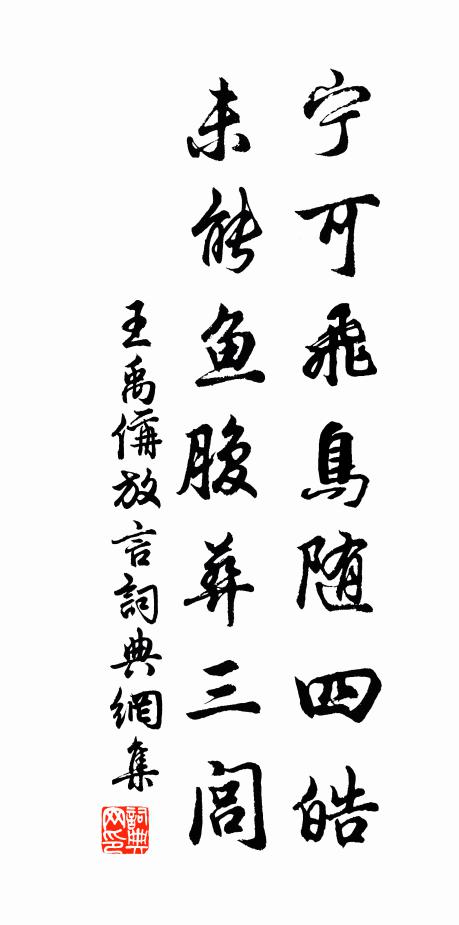 宁可飛鳥随四皓
未能鱼腹葬三闾
王禹偁放言詞典網集
詞典网印